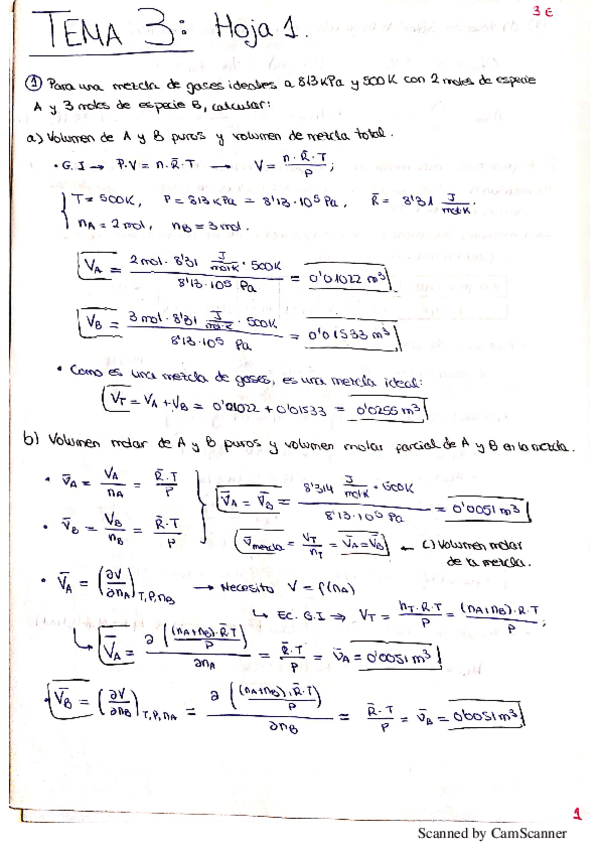 3E
TEMA 3: Hoja 1.
① Para una mezcla de gases ideales a 813 KPa y 500 K con 2 moles de especie
A y 3 moles de especie B, calcular:
a) Volumen de A y B puros y volumen de mezcla total.
• G.I → P.V = n.R̄.T → V = n.R̄.T / P ;
T = 500K, P = 813 KPa = 8'13·10⁵ Pa, R̄ = 8'31 J/mol·K.
n_A = 2 mol, n_B = 3 mol.
V_A = 2 mol · 8'31 J/mol·K · 500K / 8'13·10⁵ Pa = 0'01022 m³
V_B = 3 mol · 8'31 J/mol·K · 500K / 8'13·10⁵ Pa = 0'01533 m³
• Como es una mezcla de gases, es una mezcla ideal:
V_T = V_A + V_B = 0'01022 + 0'01533 = 0'0255 m³
b) Volumen molar de A y B puros y volumen molar parcial de A y B en la mezcla.
• v̄_A = V_A / n_A = R̄.T / P
v̄_A = v̄_B = 8'314 J/mol·K · 500K / 8'13·10⁵ Pa = 0'0051 m³
• v̄_B = V_B / n_B = R̄.T / P
v̄_mezcla = V_T / n_T = v̄_A = v̄_B ← c) Volumen molar
de la mezcla.
• V̄_A = (∂V/∂n_A)_T,P,n_B → Necesito V = f(n_A)
↳ EC. G.I ⇒ V_T = n_T.R.T / P = (n_A+n_B).R.T / P ;
↳ V̄_A = ∂((n_A+n_B).R̄.T / P) / ∂n_A = R̄.T / P = v̄_A = 0'0051 m³
• V̄_B = (∂V/∂n_B)_T,P,n_A = ∂((n_A+n_B).R̄.T / P) / ∂n_B = R̄.T / P = v̄_B = 0'0051 m³
1
Scanned by CamScanner